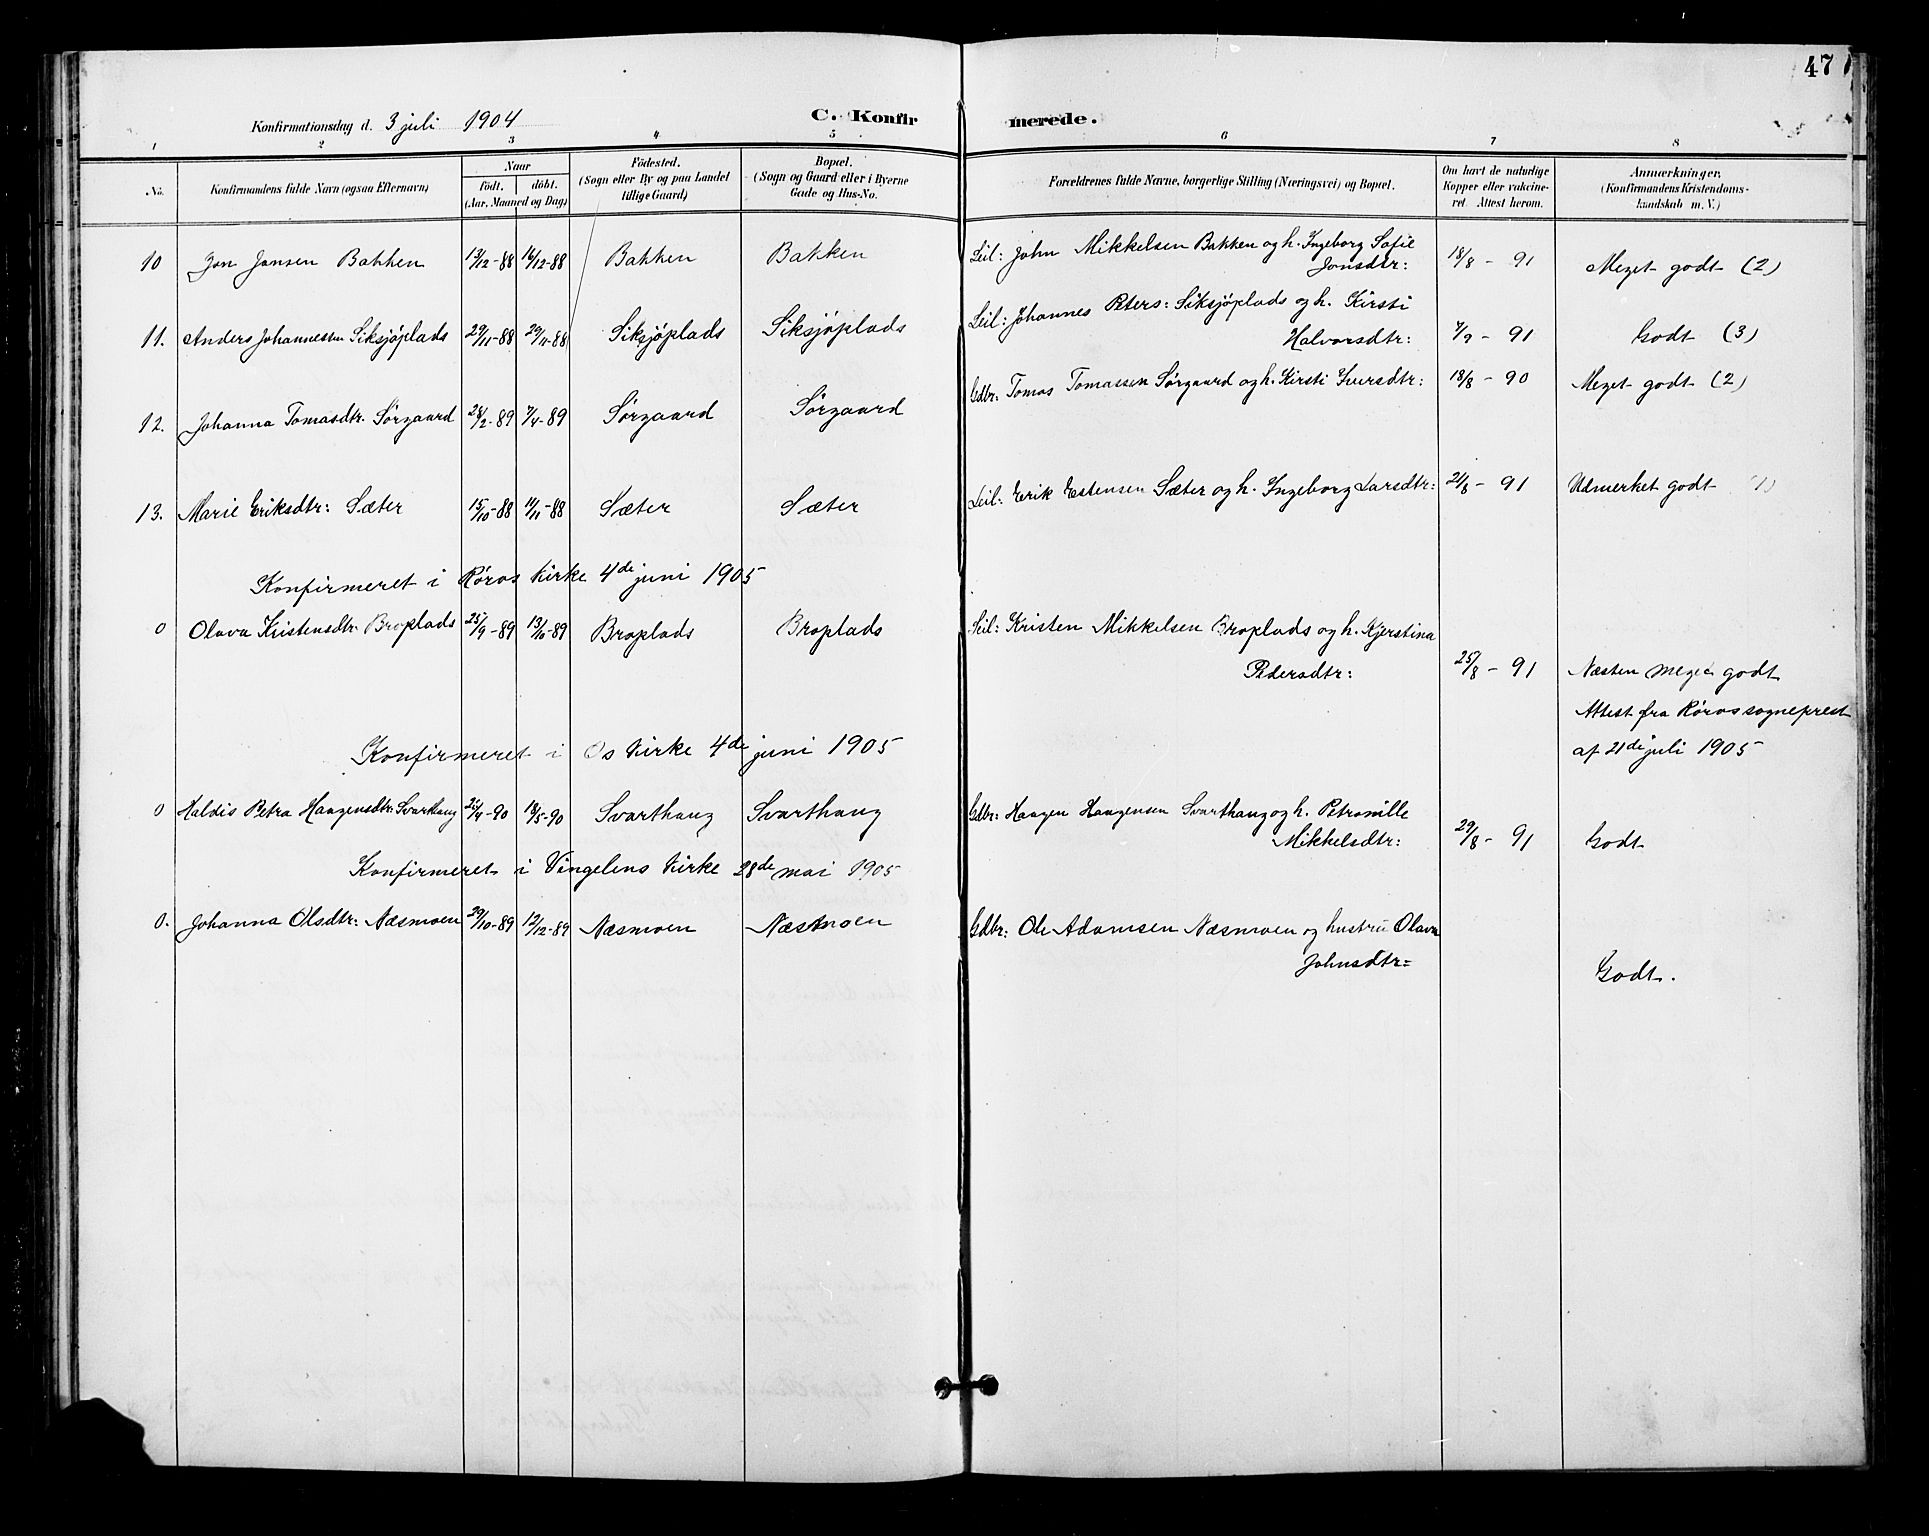 47
Konfirmationsdag d. 3 juli 1904 C. Konfirmerede.
1 2 3 4 5 6 7 8
No. Konfirmandens fulde Navn (ogsaa Efternavn) Naar födt. döbt. (Aar, Maaned og Dag) Födested. (Sogn eller By og paa Landet tillige Gaard) Bopæl. (Sogn og Gaard eller i Byerne Gade og Hus-No. Forældrenes fulde Navne, borgerlige Stilling (Næringsvei) og Bopæl. Om havt de naturlige Kopper eller vakcineret. Attest herom. Anmærkninger, (Konfirmandens Kristendomskundskab m. V.)
10 Jon Jonsen Bakken 13/12-88 16/12-88 Bakken Bakken Leil: John Mikkelsen Bakken og h. Ingeborg Sofie 18/8 - 91 Meget godt (2)
Jonsdtr:
11. Anders Johannesen Siksjöplads 29/11-88 29/11-88 Siksjöplads Siksjöplads Leil: Johannes Peters: Siksjöplads og h. Kirsti
Halvorsdtr: 7/9 - 91 Godt (3)
12. Johanna Tomasdtr. Sörgaard 28/2-89 7/4-89 Sörgaard Sörgaard Gdbr: Tomas Tomassen Sörgaard og h. Kirsti Iversdtr: 18/8 - 90 Meget godt (2)
13. Marie Eriksdtr: Sæter 15/10-88 11/11-88 Sæter Sæter Leil: Erik Estensen Sæter og h. Ingeborg Larsdtr: 21/8 - 91 Udmerket godt 1)
Konfirmeret i Röros kirke 4de juni 1905
0 Olava Kristensdtr. Broplads 25/9-89 13/10-89 Broplads Broplads Leil: Kristen Mikkelsen Broplads og h. Kjerstina
Pedersdtr: 25/8 - 91 Næsten meget godt
Attest fra Röros sogneprest
Konfirmeret i Os kirke 4de juni 1905 af 21de juli 1905
0 Haldis Petra Haagensdtr: Svarthaug 25/4-90 18/5-90 Svarthaug Svarthaug Gdbr: Haagen Haagensen Svarthaug og h. Petronille
Mikkelsdtr: 29/8 - 91 Godt
Konfirmeret i Vingelens kirke 28de mai 1905
0. Johanna Olsdtr: Næsmoen 29/10-89 12/12-89 Næsmoen Næsmoen Gdbr: Ole Adamsen Næsmoen og hustru Olava
Johnsdtr= Godt.